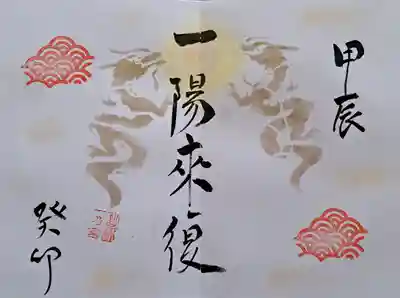 甲辰
一陽来復
癸卯